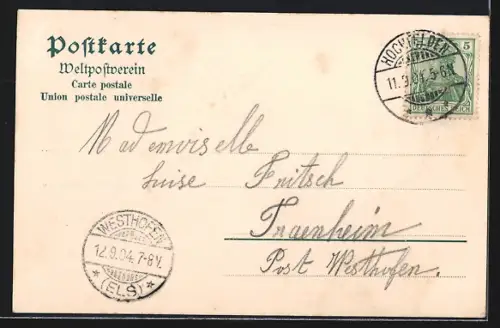 Postkarte
Weltpostverein
Carte postale
Union postale universelle
HOCHFELDEN
11.9.04. 5-6N.
5
Mademoiselle
Luise Fritsch
Traenheim
Post Westhofen.
WESTHOFEN
12.9.04. 7-8V.
* (ELS) *